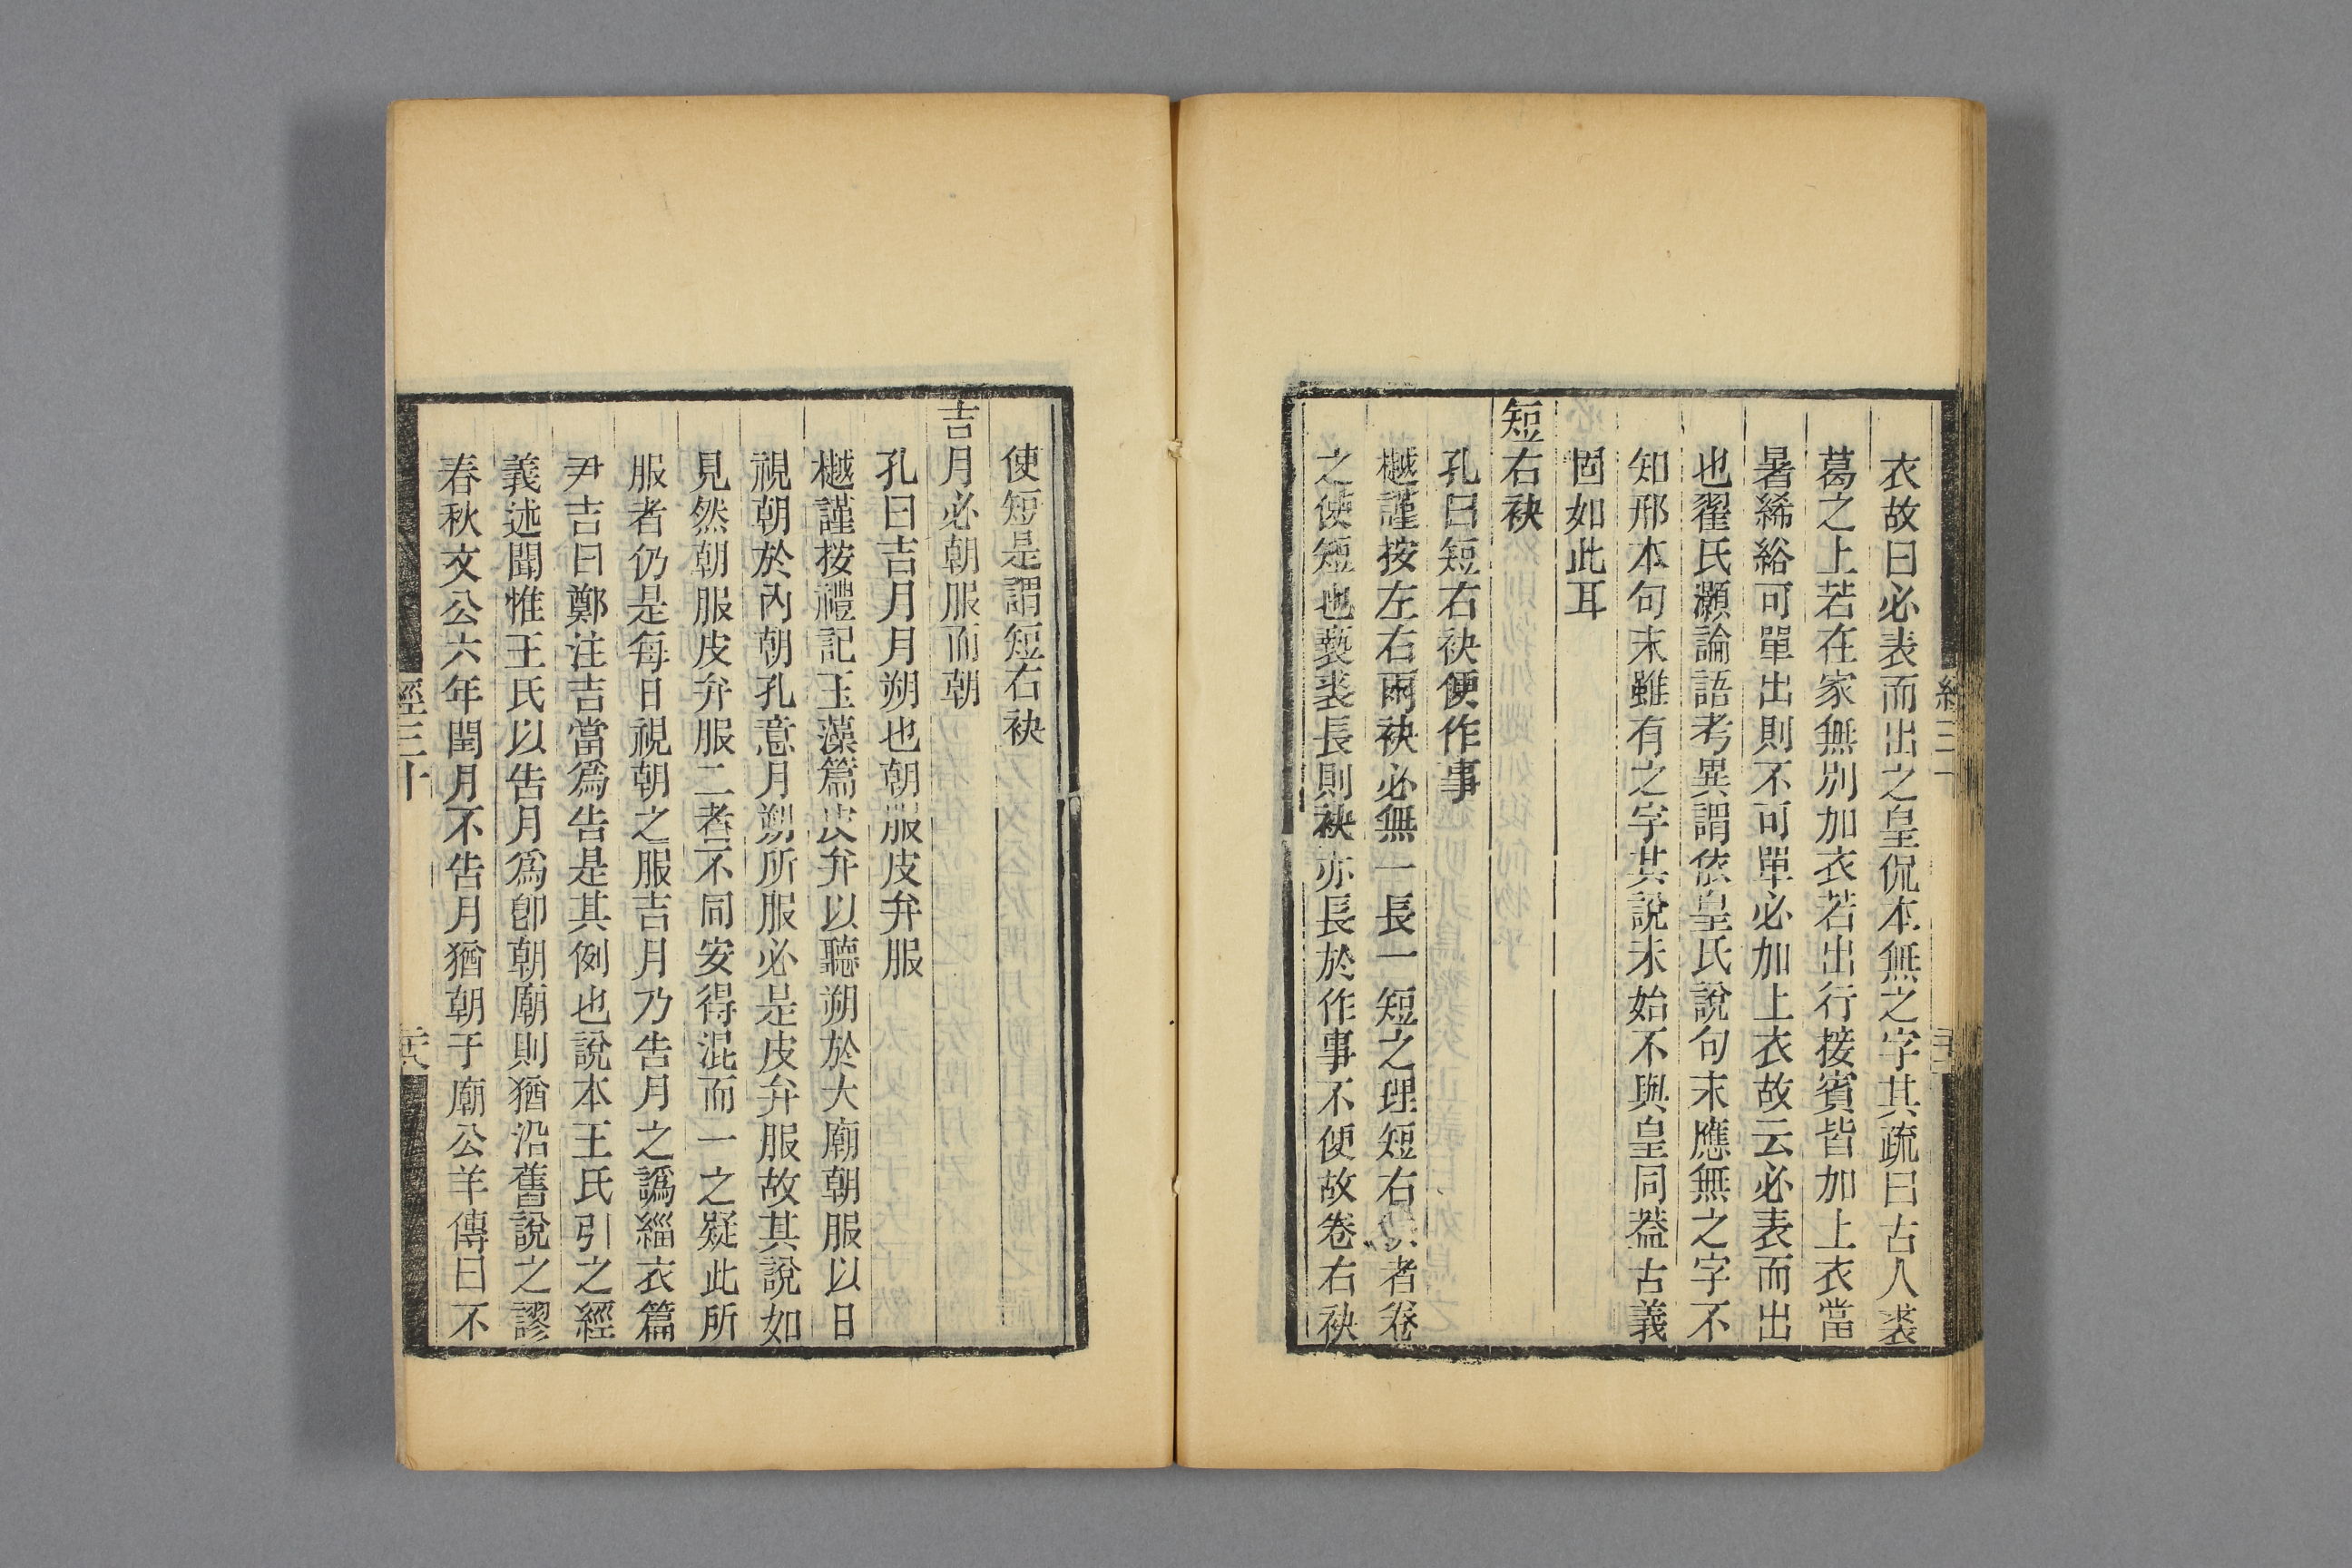 衣故曰必表而出之皇侃本無之字其疏曰古人裘
葛之上若在家無別加衣若出行接賓皆加上衣當
暑絺綌可單出則不可單必加上衣故云必表而出
也翟氏灝論語考異謂依皇氏說句末應無之字不
知邢本句末雖有之字其說未始不與皇同葢古義
固如此耳
短右袂
孔曰短右袂便作事
樾謹按左右兩袂必無一長一短之理短右者卷
之使短也褻裘長則袂亦長於作事不便故卷右袂
使短是謂短右袂
吉月必朝服而朝
孔曰吉月月朔也朝服皮弁服
樾謹按禮記玉藻篇皮弁以聽朔於大廟朝服以日
視朝於內朝孔意月朔所服必是皮弁服故其說如
見然朝服皮弁服二者不同安得混而一之疑此所
服者仍是每日視朝之服吉月乃告月之譌緇衣篇
尹吉曰鄭注吉當爲告是其例也說本王氏引之經
義述聞惟王氏以告月爲卽朝廟則猶沿舊說之謬
春秋文公六年閏月不告月猶朝于廟公羊傳曰不
經三十